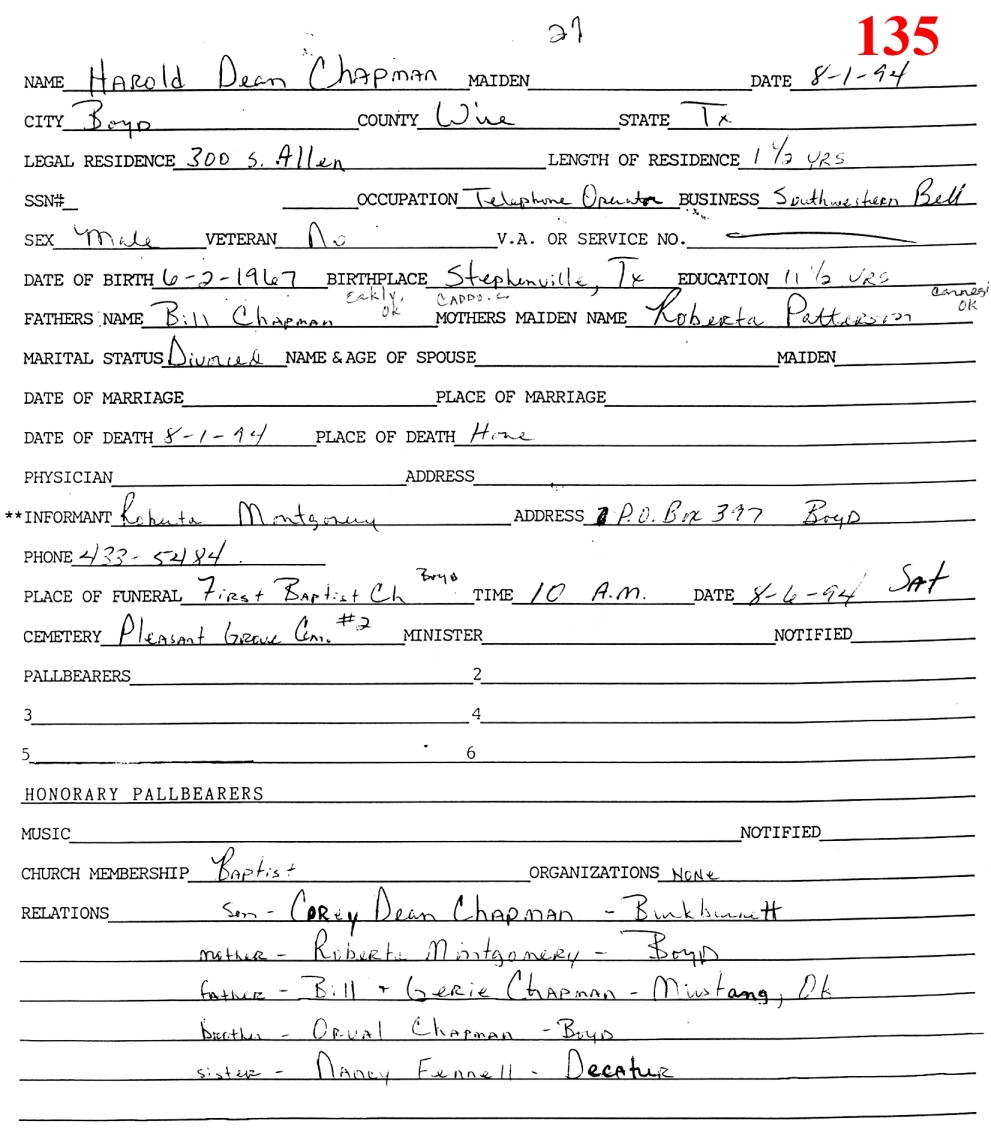 27
135
NAME Harold Dean Chapman MAIDEN DATE 8-1-94
CITY Boyd COUNTY Wise STATE Tx
LEGAL RESIDENCE 300 S. Allen LENGTH OF RESIDENCE 1 1/2 YRS
SSN# OCCUPATION Telephone Operator BUSINESS Southwestern Bell
SEX Male VETERAN No V.A. OR SERVICE NO.
DATE OF BIRTH 6-2-1967 BIRTHPLACE Stephenville, Tx EDUCATION 11 1/2 YRS
Eakly, OK CADDO. Carnegi OK
FATHERS NAME Bill Chapman MOTHERS MAIDEN NAME Roberta Patterson
MARITAL STATUS Divorced NAME & AGE OF SPOUSE MAIDEN
DATE OF MARRIAGE PLACE OF MARRIAGE
DATE OF DEATH 8-1-94 PLACE OF DEATH Home
PHYSICIAN ADDRESS
**INFORMANT Roberta Montgomery ADDRESS P.O. Box 397 Boyd
PHONE 433-5484
PLACE OF FUNERAL First Baptist Ch Boyd TIME 10 A.M. DATE 8-6-94 SAT
CEMETERY Pleasant Grove Cem. #2 MINISTER NOTIFIED
PALLBEARERS 2
3 4
5 6
HONORARY PALLBEARERS
MUSIC NOTIFIED
CHURCH MEMBERSHIP Baptist ORGANIZATIONS None
RELATIONS Son - Corey Dean Chapman - Burkburnett
mother - Roberta Montgomery - Boyd
father - Bill + Gerie Chapman - Mustang, Ok
brother - Orval Chapman - Boyd
sister - Nancy Fennell - Decatur